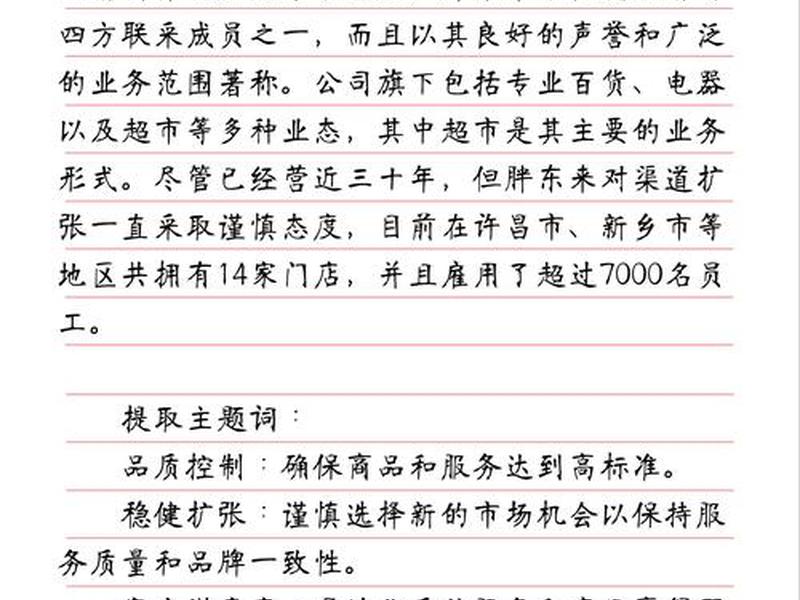 四方联采成员之一，而且以其良好的声誉和广泛
的业务范围著称。公司旗下包括专业百货、电器
以及超市等多种业态，其中超市是其主要的业务
形式。尽管已经营近三十年，但胖东来对渠道扩
张一直采取谨慎态度，目前在许昌市、新乡市等
地区共拥有14家门店，并且雇用了超过7000名员
工。
提取主题词：
品质控制：确保商品和服务达到高标准。
稳健扩张：谨慎选择新的市场机会以保持服
务质量和品牌一致性。